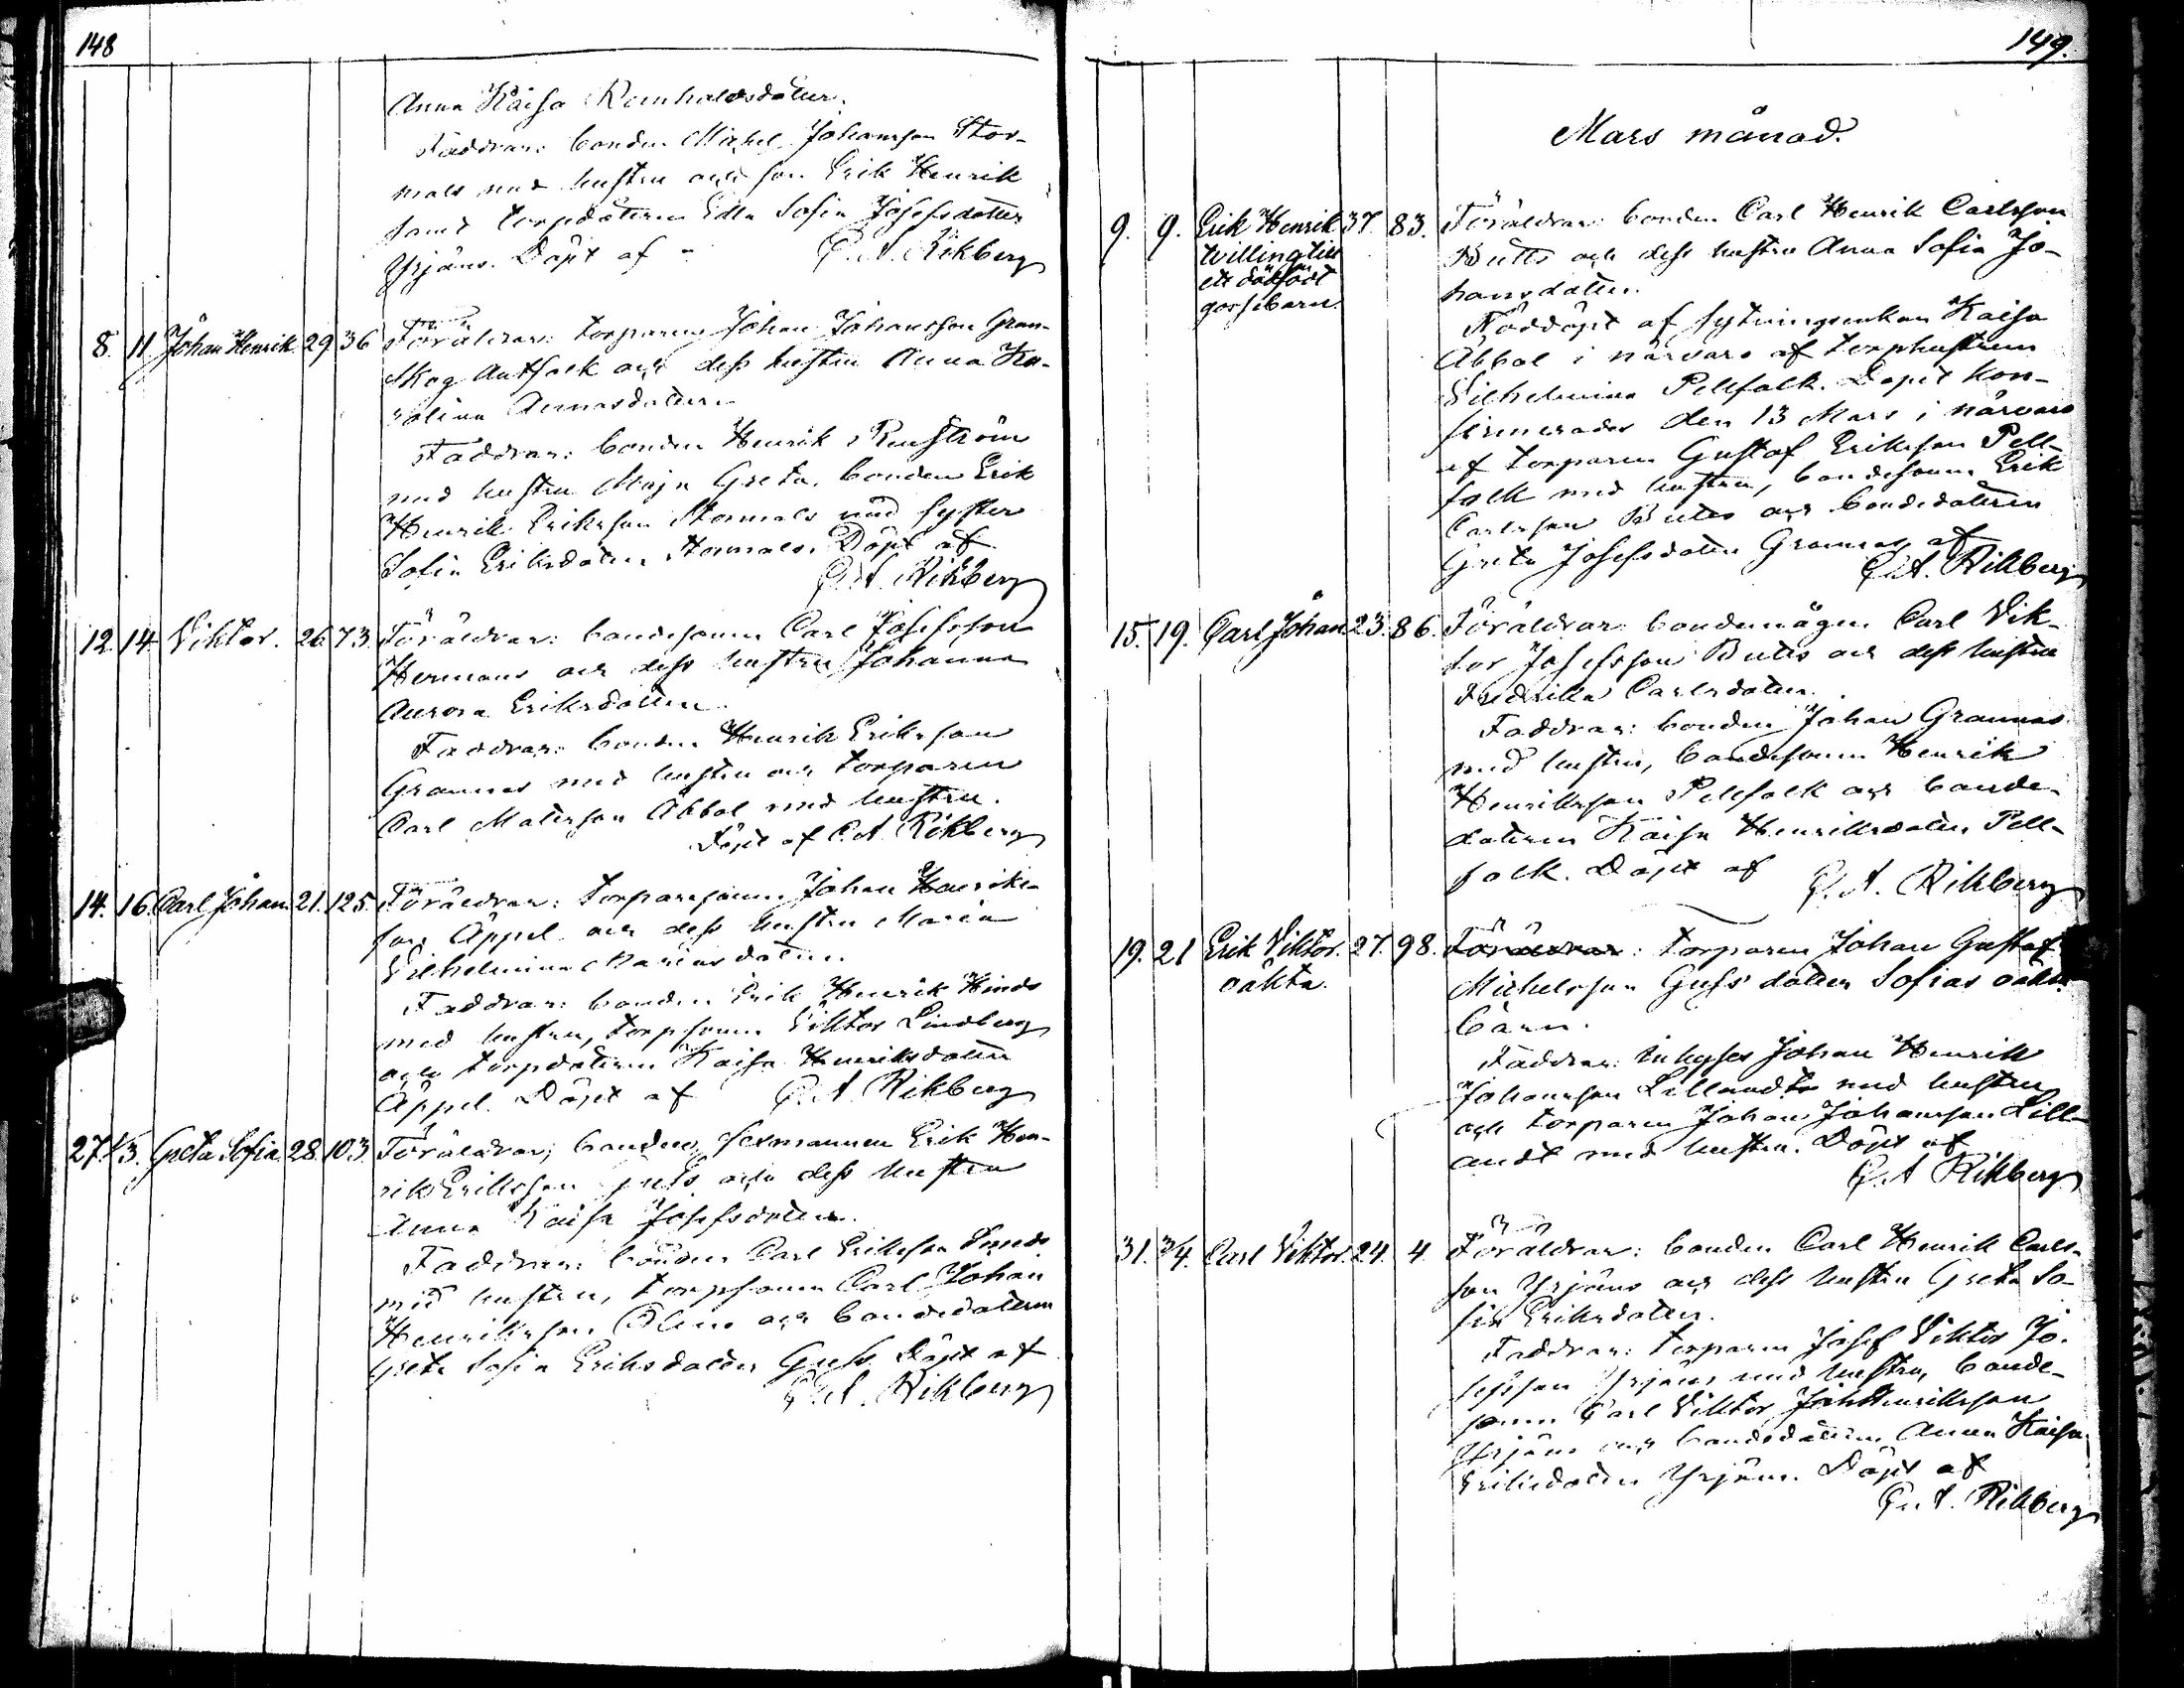 148
Anna Kaisa Reinholdsdotter.
Faddrar: bonden Michel Johansson Stor-
mals med hustru och son Erik Henrik
samt torpdottren Edla Sofia Josefsdotter
Yrjäns. Döpt af C. A. Rikberg
8. 11 Johan Henrik 29 36 Föräldrar: torparen Johan Johansson Gran-
skog Antfolk och dess hustru Anna Ka-
rolina Annasdotter.
Faddrar: bonden Henrik Renström
med hustru Maja Greta, bonden Erik
Henrik Eriksson Stormals med syster
Sofia Eriksdotter Stormals. Döpt af
C. A. Rikberg
12. 14. Viktor. 26. 73. Föräldrar: bondesonen Carl Josefsson
Hermans och dess hustru Johanna
Aurora Eriksdotter.
Faddrar: bonden Henrik Eriksson
Grannas med hustru och torparen
Carl Matsson Abbal med hustru.
Döpt af C. A. Rikberg
14. 16. Carl Johan. 21. 125. Föräldrar: torparesonen Johan Henriks-
son Äppel och dess hustru Maria
Vilhelmina Mariasdotter.
Faddrar: bonden Erik Henrik Hinds
med hustru, torpsonen Viktor Lindberg
och torpdottren Kaisa Henriksdotter
Äppel. Döpt af C. A. Rikberg
27. 1/3. Greta Sofia 28. 103. Föräldrar; bonden, sexmannen Erik Hen-
rik Eriksson och dess hustru
Anna Kaisa Josefsdotter.
Faddrar: bonden Carl Eriksson Smeds
med hustru, torpsonen Carl Johan
Henriksson och bondedottren
Greta Sofia Eriksdotter Guss. Döpt af
C. A. Rikberg
149.
Mars månad.
9. 9. Erik Henrik 37. 83. Föräldrar: bonden Carl Henrik Carlsson
tvilling till Butts och dess hustru Anna Sofia Jo-
ett dödfödt hansdotter.
gossebarn. Nöddöpt af sytningsenkan Kaisa
Abbal i närvaro af torphustrun
Vilhelmina Pellfolk. Dopet kon-
firmerades den 13 Mars i närvaro
af torparen Gustaf Eriksson Pell-
folk med hustru, bondesonen Erik
Carlsson Butts och bondedottren
Greta Josefsdotter Grannas af
C. A. Rikberg
15. 19. Carl Johan 23. 86. Föräldrar: bondemågen Carl Vik-
tor Josefsson Butts och dess hustru
Fredrika Carlsdotter.
Faddrar: bonden Johan Grannas
med hustru, bondesonen Henrik
Henriksson Pellfolk och bonde-
dottren Kaisa Henriksdotter Pell-
folk. Döpt af C. A. Rikberg
19. 21 Erik Viktor. 27. 98. Föräldrar: torparen Johan Gustaf
oäkta. Michelsson Guss' dotter Sofias oäkta
barn.
Faddrar: inhyses Johan Henrik
Johansson Lillandt med hustru
och torparen Johan Johansson Lill-
andt med hustru. Döpt af
C. A. Rikberg
31. 3/4. Carl Viktor. 24. 4. Föräldrar: bonden Carl Henrik Carls-
son Yrjäns och dess hustru Greta So-
fia Eriksdotter.
Faddrar: torparen Josef Viktor Jo-
sefsson Yrjäns med hustru, bonde-
sonen Carl Viktor Joh Henriksson
Yrjäns och bondedottren Anna Kaisa
Eriksdotter Yrjäns. Döpt af
C. A. Rikberg